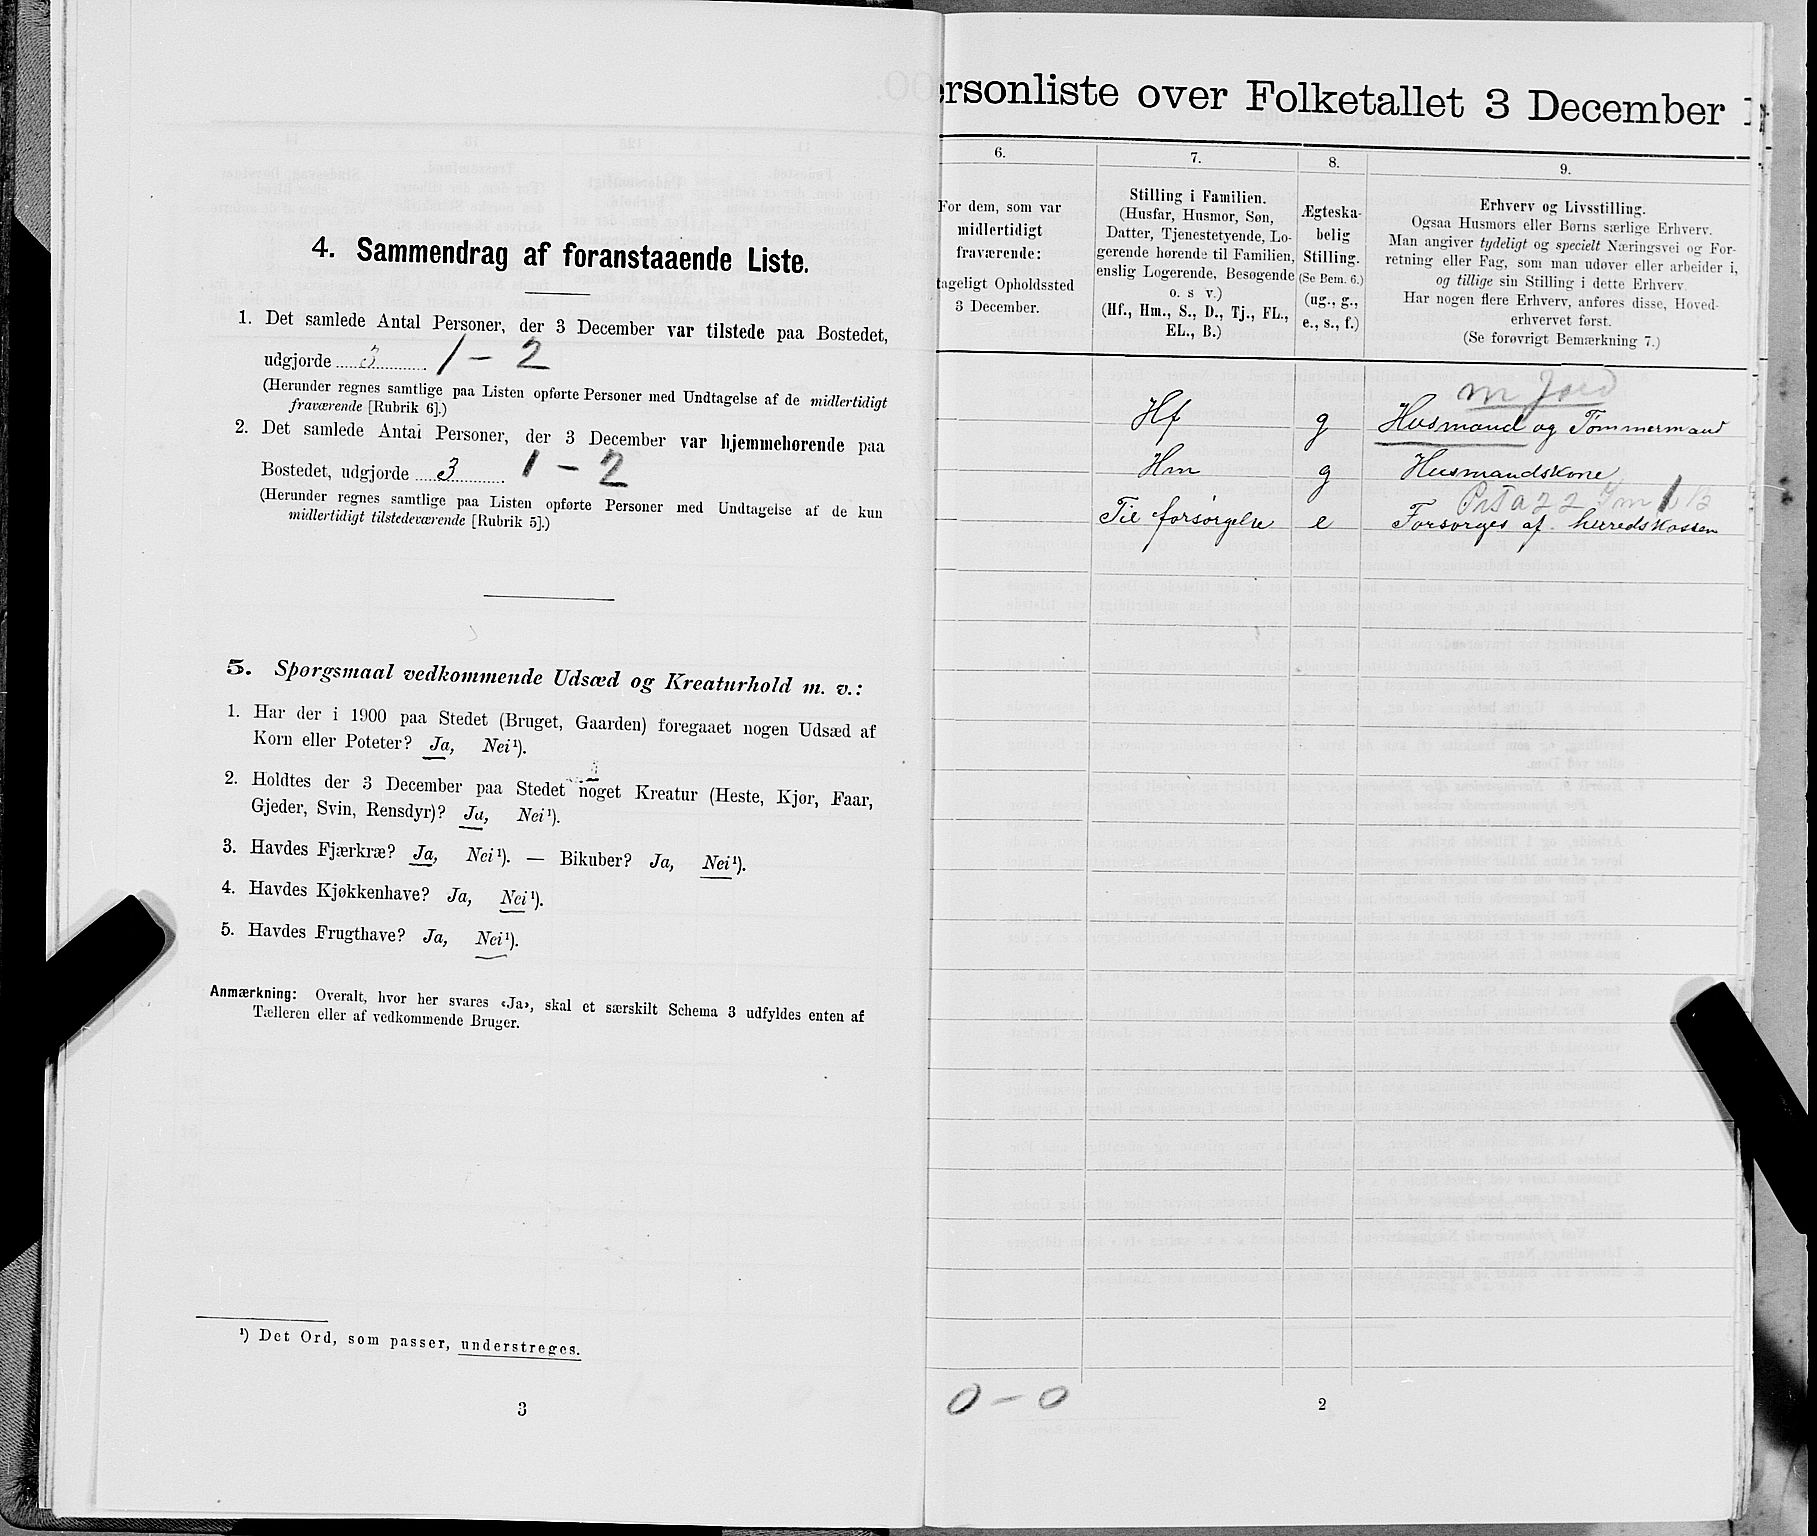 4. Sammendrag af foranstaaende Liste.
1. Det samlede Antal Personer, der 3 December var tilstede paa Bostedet,
udgjorde 3 1 – 2
(Herunder regnes samtlige paa Listen opførte Personer med Undtagelse af de midlertidigt
fraværende [Rubrik 6].)
2. Det samlede Antal Personer, der 3 December var hjemmehørende paa
Bostedet, udgjorde 3 1 – 2
(Herunder regnes samtlige paa Listen opførte Personer med Undtagelse af de kun
midlertidigt tilstedeværende [Rubrik 5].)
5. Spørgsmaal vedkommende Udsæd og Kreaturhold m. v.:
1. Har der i 1900 paa Stedet (Bruget, Gaarden) foregaaet nogen Udsæd af
Korn eller Poteter? Ja, Nei¹).
2. Holdtes der 3 December paa Stedet noget Kreatur (Heste, Kjør, Faar,
Gjeder, Svin, Rensdyr)? Ja, Nei¹).
3. Havdes Fjærkræ? Ja, Nei¹). — Bikuber? Ja, Nei¹).
4. Havdes Kjøkkenhave? Ja, Nei¹).
5. Havdes Frugthave? Ja, Nei¹).
Anmærkning: Overalt, hvor her svares «Ja», skal et særskilt Schema 3 udfyldes enten af
Tælleren eller af vedkommende Bruger.
¹) Det Ord, som passer, understreges.
3
ersonliste over Folketallet 3 December 1
6.
For dem, som var
midlertidigt
fraværende:
tageligt Opholdssted
3 December.
7.
Stilling i Familien.
(Husfar, Husmor, Søn,
Datter, Tjenestetyende, Lo-
gerende hørende til Familien,
enslig Logerende, Besøgende
o. s v.)
(Hf., Hm., S., D., Tj., FL.,
EL., B.)
8.
Ægteska-
belig
Stilling.
(Se Bem. 6.)
(ug., g.,
e., s., f.)
9.
Erhverv og Livsstilling.
Ogsaa Husmors eller Børns særlige Erhverv.
Man angiver tydeligt og specielt Næringsvei og For-
retning eller Fag, som man udøver eller arbeider i,
og tillige sin Stilling i dette Erhverv.
Har nogen flere Erhverv, anføres disse, Hoved-
erhvervet først.
(Se forøvrigt Bemærkning 7.)
m Jord
Hf g Husmand og Tømmermand
Hm g Husmandskone
Til forsørgelse e Forsørges af herredskassen
0 – 0
2